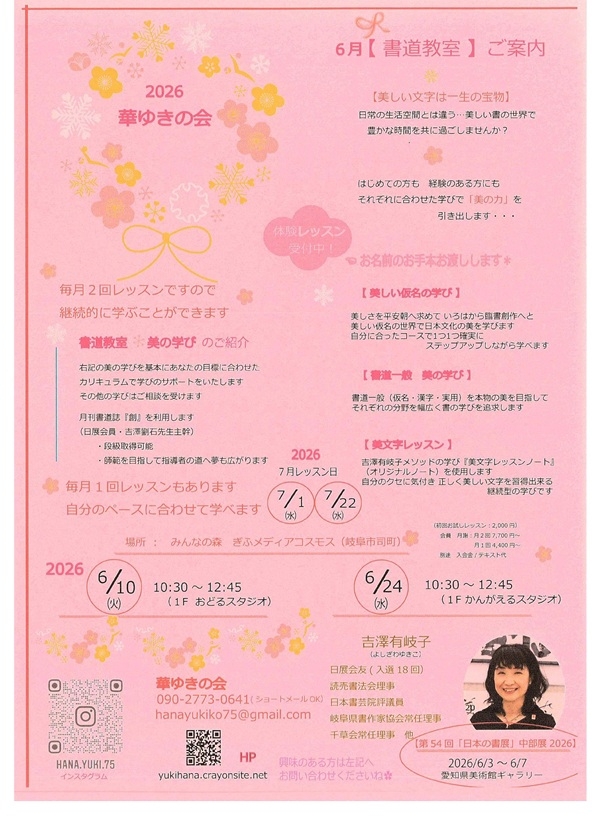 6月【 書道教室 】 ご案内
2026
華ゆきの会
【美しい文字は一生の宝物】
日常の生活空間とは違う…美しい書の世界で
豊かな時間を共に過ごしませんか？
はじめての方も 経験のある方にも
それぞれに合わせた学びで「美の力」を
引き出します・・・
体験レッスン
受付中！
お名前のお手本お渡しします*
毎月２回レッスンですので
継続的に学ぶことができます
書道教室 美の学び のご紹介
右記の美の学びを基本にあなたの目標に合わせた
カリキュラムで学びのサポートをいたします
その他の学びはご相談を受けます
月刊書道誌『創』を利用します
（日展会員・吉澤劉石先生主幹）
・段級取得可能
・師範を目指して指導者の道へ夢も広がります
毎月１回レッスンもあります
自分のペースに合わせて学べます
【 美しい仮名の学び 】
美しさを平安朝へ求めて いろはから臨書創作へと
美しい仮名の世界で日本文化の美を学びます
自分に合ったコースで1つ1つ確実に
ステップアップしながら学べます
【 書道一般 美の学び 】
書道一般（仮名・漢字・実用）を本物の美を目指して
それぞれの分野を幅広く書の学びを追求します
【 美文字レッスン 】
吉澤有岐子メソッドの学び『美文字レッスンノート』
（オリジナルノート）を使用します
自分のクセに気付き 正しく美しい文字を習得出来る
継続型の学びです
2026
７月レッスン日
7/1
(水)
7/22
(水)
(初回お試しレッスン：2,000円)
会費 月謝：月２回 7,700円〜
月１回 4,400円〜
別途 入会金 / テキスト代
場所 ： みんなの森 ぎふメディアコスモス（岐阜市司町）
2026
6/10
(火)
10:30 〜 12:45
（１F おどるスタジオ）
6/24
(水)
10:30 〜 12:45
（１F かんがえるスタジオ）
華ゆきの会
090-2773-0641(ショートメールOK)
hanayukiko75@gmail.com
HANA.YUKI.75
インスタグラム
HP
yukihana.crayonsite.net
興味のある方は左記へ
お問い合わせくださいね✿
吉澤有岐子
(よしざわゆきこ)
日展会友（入選18回）
読売書法会理事
日本書芸院評議員
岐阜県書作家協会常任理事
千草会常任理事 他
【第54回「日本の書展」中部展2026】
2026/6/3 〜 6/7
愛知県美術館ギャラリー